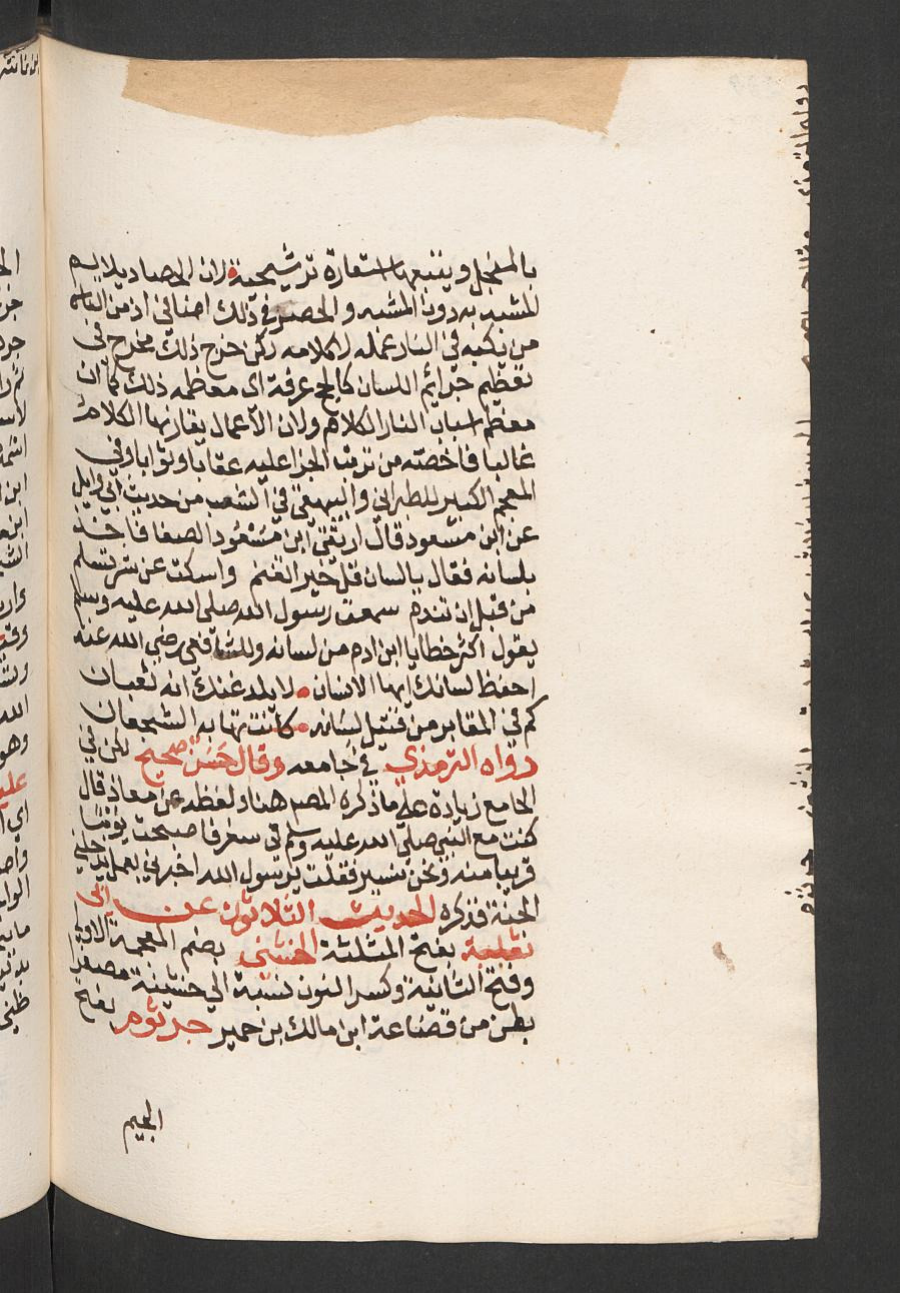 بالمنجل ويتبعها استعارة ترشيحية لان الحصاد يلايم
المشبه به دون المشبه والحصر في ذلك اضافي اذ من الناس
من يكبه في النار عمله لا كلامه لكن خرج ذلك مخرج في
تعظيم جرائم اللسان كالحج عرفة اى معظمه ذلك كما ان
معظم اسباب النار الكلام ولان الاعمال يقارنها الكلام
غالبا فله حصته من ترتب الجزا عليه عقابا وثوابا وفي
المعجم الكبير للطبراني والبيهقي في الشعب من حديث أبي وايل
عن ابن مسعود قال ارتقى ابن مسعود الصفا فاخذ
بلسانه فقال يا لسان قل خير اتغنم واسكت عن شر تسلم
من قبل ان تندم سمعت رسول الله صلى الله عليه وسلم
يقول اكثر خطايا ابن ادم من لسانه وللشافعي رضي الله عنه
احفظ لسانك ايها الانسان لا يلدغنك انه ثعبان
كم في المقابر من قتيل لسانه كانت تهابه الشجعان
رواه الترمذي في جامعه وقال حسن صحيح لكن في
الجامع زيادة على ما ذكره المصم هنا ولفظه عن معاذ قال
كنت مع النبي صلى الله عليه وسلم في سفر فاصبحت يوما
قريبا منه ونحن نسير فقلت يرسول الله اخبرني بعمل يدخلني
الجنة فذكره الحديث الثلاثون عن ابي
ثعلبة بفتح المثلثة الخشني بضم المعجمة الاولى
وفتح الثانية وكسر النون نسبة الى خشينة مصغرا
بطن من قضاعة ابن مالك بن حمير جرثوم بفتح
الجيم